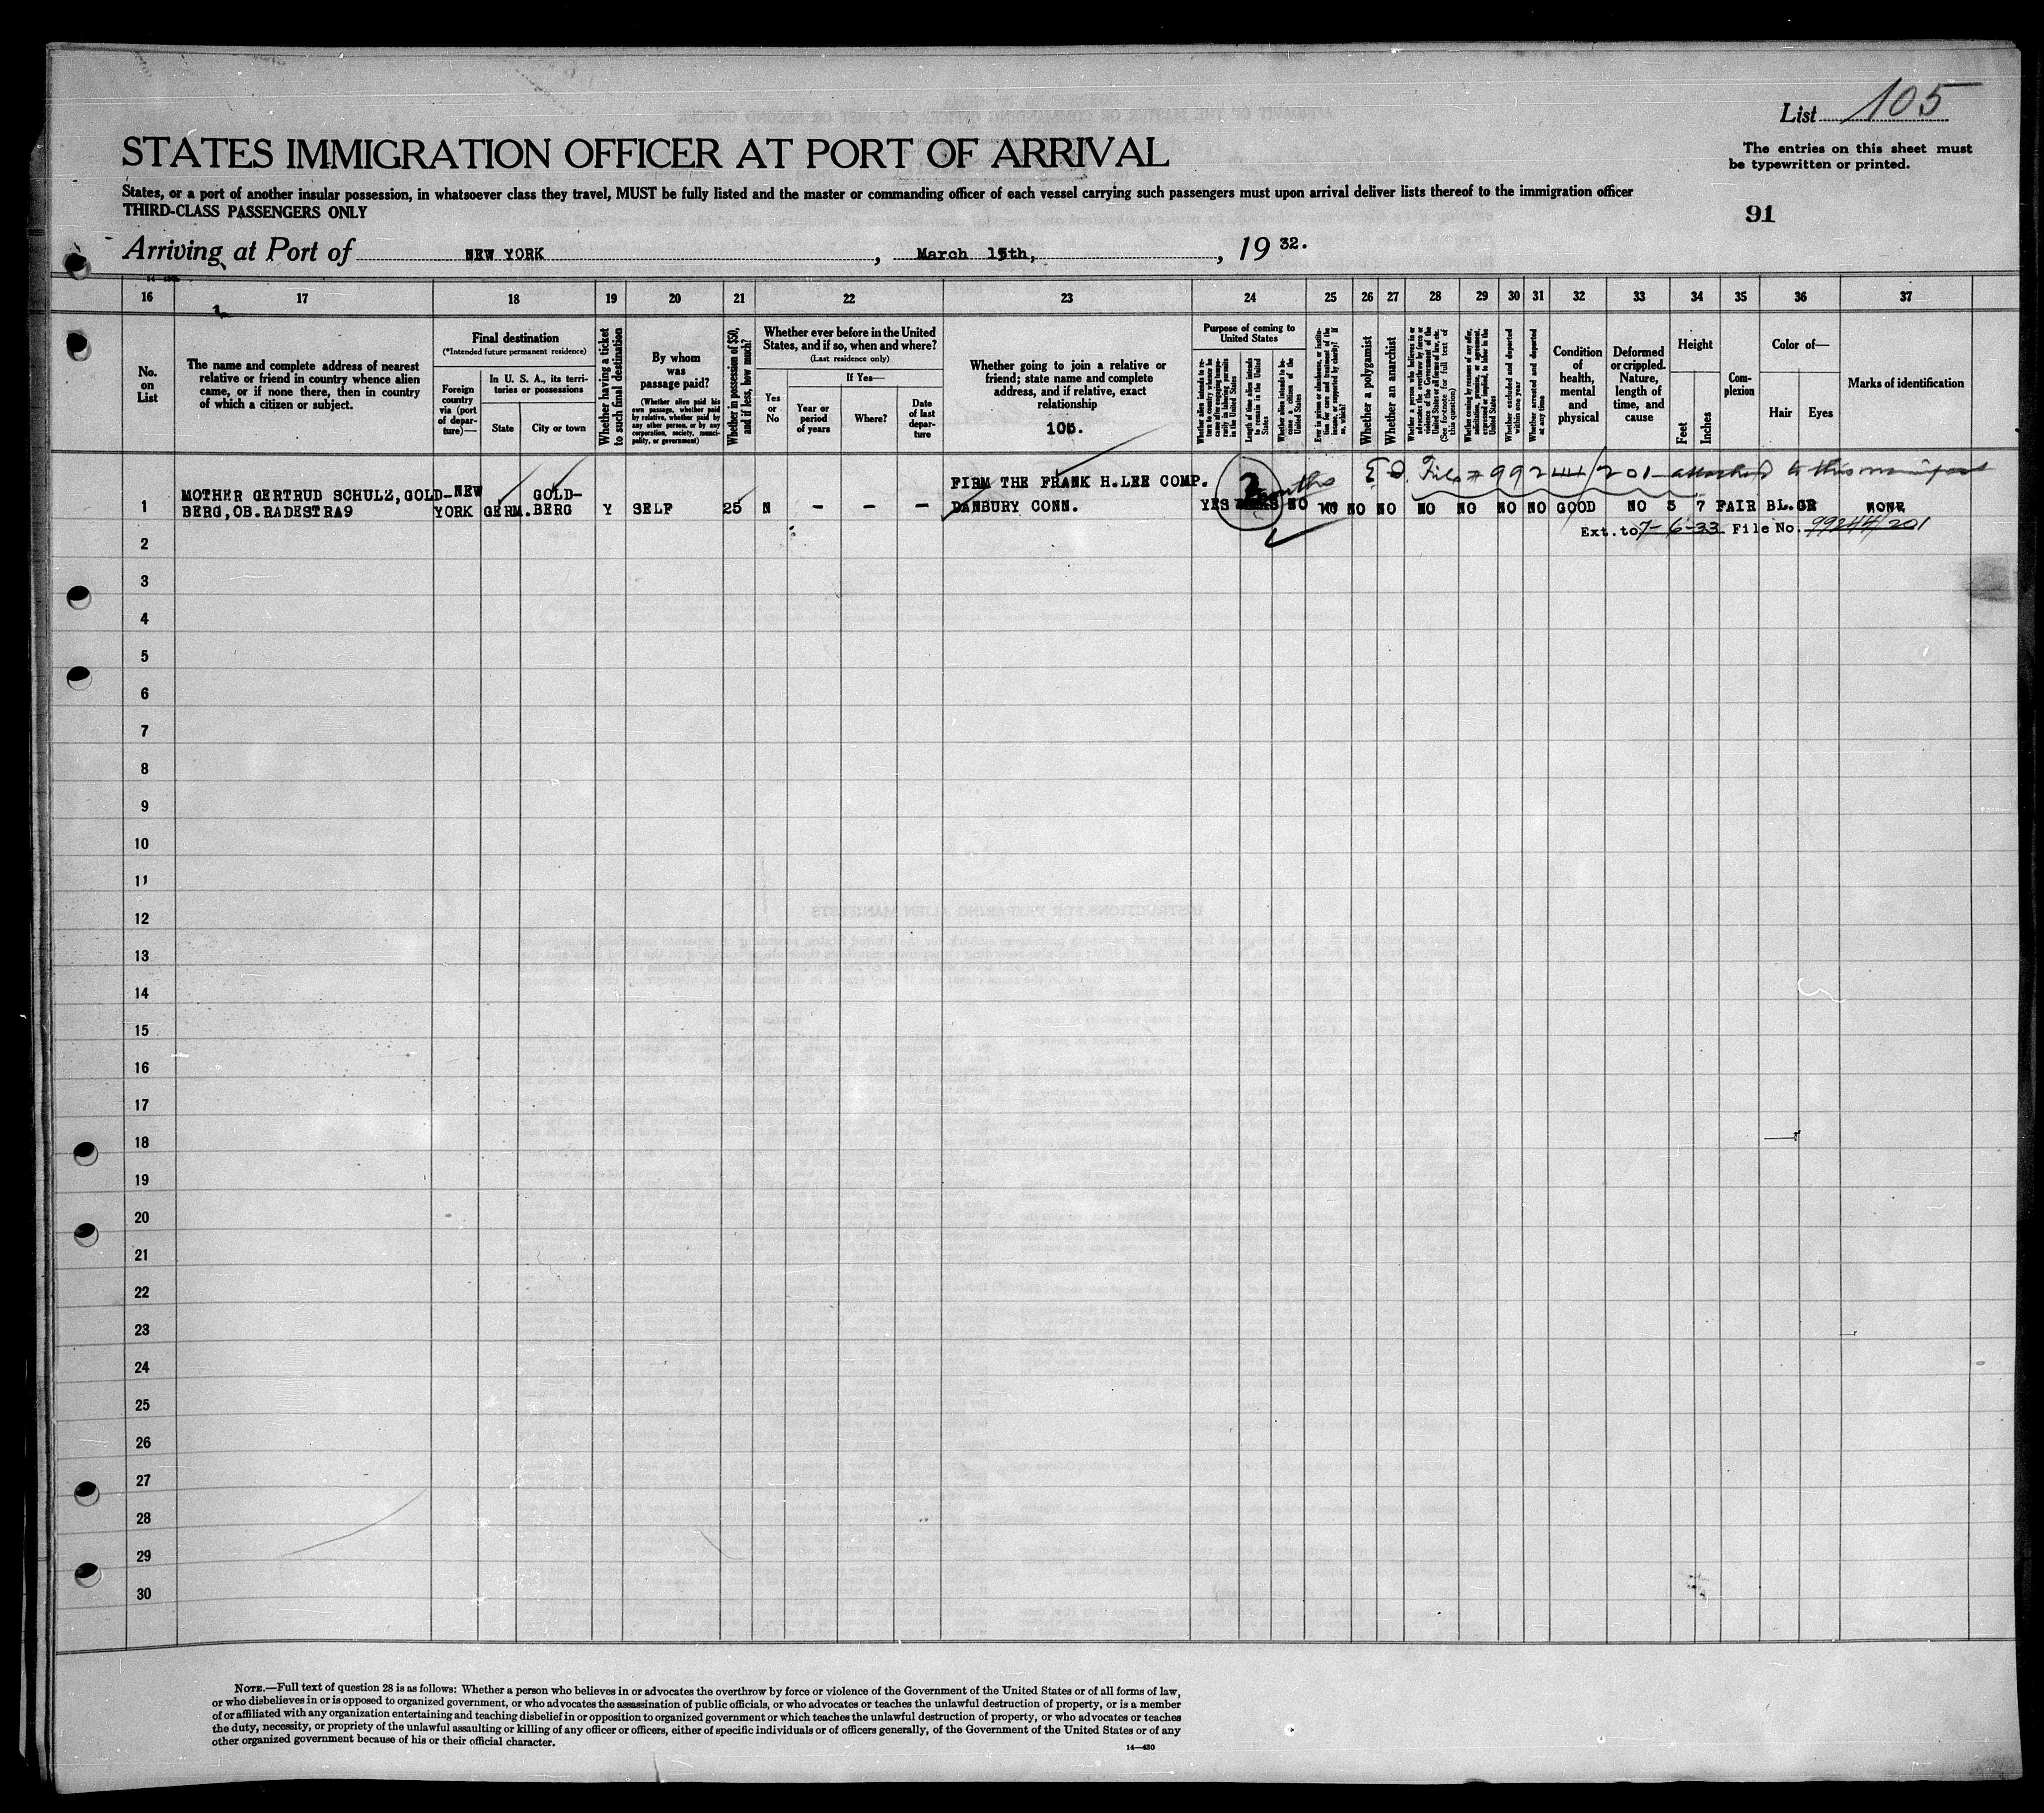 List 105
The entries on this sheet must
be typewritten or printed.
STATES IMMIGRATION OFFICER AT PORT OF ARRIVAL
States, or a port of another insular possession, in whatsoever class they travel, MUST be fully listed and the master or commanding officer of each vessel carrying such passengers must upon arrival deliver lists thereof to the immigration officer
THIRD-CLASS PASSENGERS ONLY
91
Arriving at Port of NEW YORK, March 15th, 1932.
16 17 18 19 20 21 22 23 24 25 26 27 28 29 30 31 32 33 34 35 36 37
No.
on
List
The name and complete address of nearest
relative or friend in country whence alien
came, or if none there, then in country
of which a citizen or subject.
Final destination
(*Intended future permanent residence)
Foreign
country
via (port
of depar-
ture)—
In U. S. A., its terri-
tories or possessions
State
City or town
Whether having a ticket
to such final destination
By whom
was
passage paid?
(Whether alien paid his
own passage, whether paid
by relative, whether paid by
any other person, or by any
corporation, society, munici-
pality, or government)
Whether in possession of $50,
and if less, how much?
Whether ever before in the United
States, and if so, when and where?
(Last residence only)
Yes
or
No
If Yes—
Year or
period
of years
Where?
Date
of last
depar-
ture
Whether going to join a relative or
friend; state name and complete
address, and if relative, exact
relationship
105.
Purpose of coming to
United States
Whether alien intends to re-
turn to country whence he
came after engaging tempo-
rarily in laboring pursuits
in the United States
Length of time alien intends
to remain in the United
States
Whether alien intends to be-
come a citizen of the
United States
Ever in prison or almshouse, or institu-
tion for care and treatment of the
insane, or supported by charity? If
so, which?
Whether a polygamist
Whether an anarchist
Whether a person who believes in or
advocates the overthrow by force or
violence of the Government of the
United States or all forms of law, etc.
(See footnote for full text of
this question)
Whether coming by reason of any offer,
solicitation, promise, or agreement,
expressed or implied, to labor in the
United States
Whether excluded and deported
within one year
Whether arrested and deported
at any time
Condition
of
health,
mental
and
physical
Deformed
or crippled.
Nature,
length of
time, and
cause
Height
Feet
Inches
Com-
plexion
Color of—
Hair
Eyes
Marks of identification
FIRM THE FRANK H.LEE COMP. 2 months File # 99244/201 attached to this manifest
MOTHER GERTRUD SCHULZ,GOLD- NEW GOLD-
1 BERG,OB.RADESTRA9 YORK GERM. BERG Y SELF 25 N - - - DANBURY CONN. YES NO NO NO NO NO NO NO NO GOOD NO 5 7 FAIR BL.GR NONE
Ext. to 7-6-33 File No. 99244/201
2
3
4
5
6
7
8
9
10
11
12
13
14
15
16
17
18
19
20
21
22
23
24
25
26
27
28
29
30
NOTE.—Full text of question 28 is as follows: Whether a person who believes in or advocates the overthrow by force or violence of the Government of the United States or of all forms of law,
or who disbelieves in or is opposed to organized government, or who advocates the assassination of public officials, or who advocates or teaches the unlawful destruction of property, or is a member
of or affiliated with any organization entertaining and teaching disbelief in or opposition to organized government or which teaches the unlawful destruction of property, or who advocates or teaches
the duty, necessity, or propriety of the unlawful assaulting or killing of any officer or officers, either of specific individuals or of officers generally, of the Government of the United States or of any
other organized government because of his or their official character.
14—430